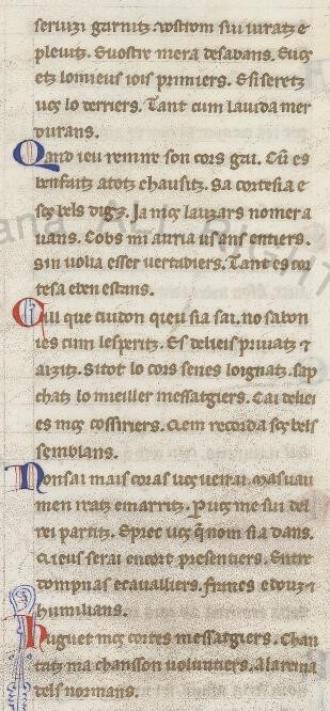 seruizi garnitz. vostrom sui iuratz e
pleuitz. Euostre mera desabans. Eucȝ
etz lomieus iois primiers. Esi seretz
ucȝ lo derriers. Tant cum lauida mer
durans.
Qand ieu remire son cors gai. Cū es
benfaitz atotz chausitz. Sa cortesia e
sȩcȝ bels digȝ. Ja micȝ lauzars nomer a
uans. Cobs mi auria us ans entiers.
Sin uolia esser uertadiers. Tant es cor
tesa eben estans.
Cill que cuidon qieu sia sai. no sabon
ies cum lesperitz. Es deleis priuatz ⁊
aizitz. Sitot lo cors senes loignatz. sap
chatz lo mieiller messatgiers. Cai deliei
es mȩs cossiriers. Qem recorda sȩcȝ bels
semblans.
Non sai mais coras ucȝ ueirai. mas uau
men iratz emarritz. P ucȝ me sui del
rei partitz. Eprec ucȝ q̄ nom sia dans.
Qieus serai encort presentiers. Entre
dompnas ecaualliers. francs edouz ⁊
humilians.
Huguet mȩs cortes messatgiers. Chan
tatz ma chansson voluntiers. Alareina
dels normans.